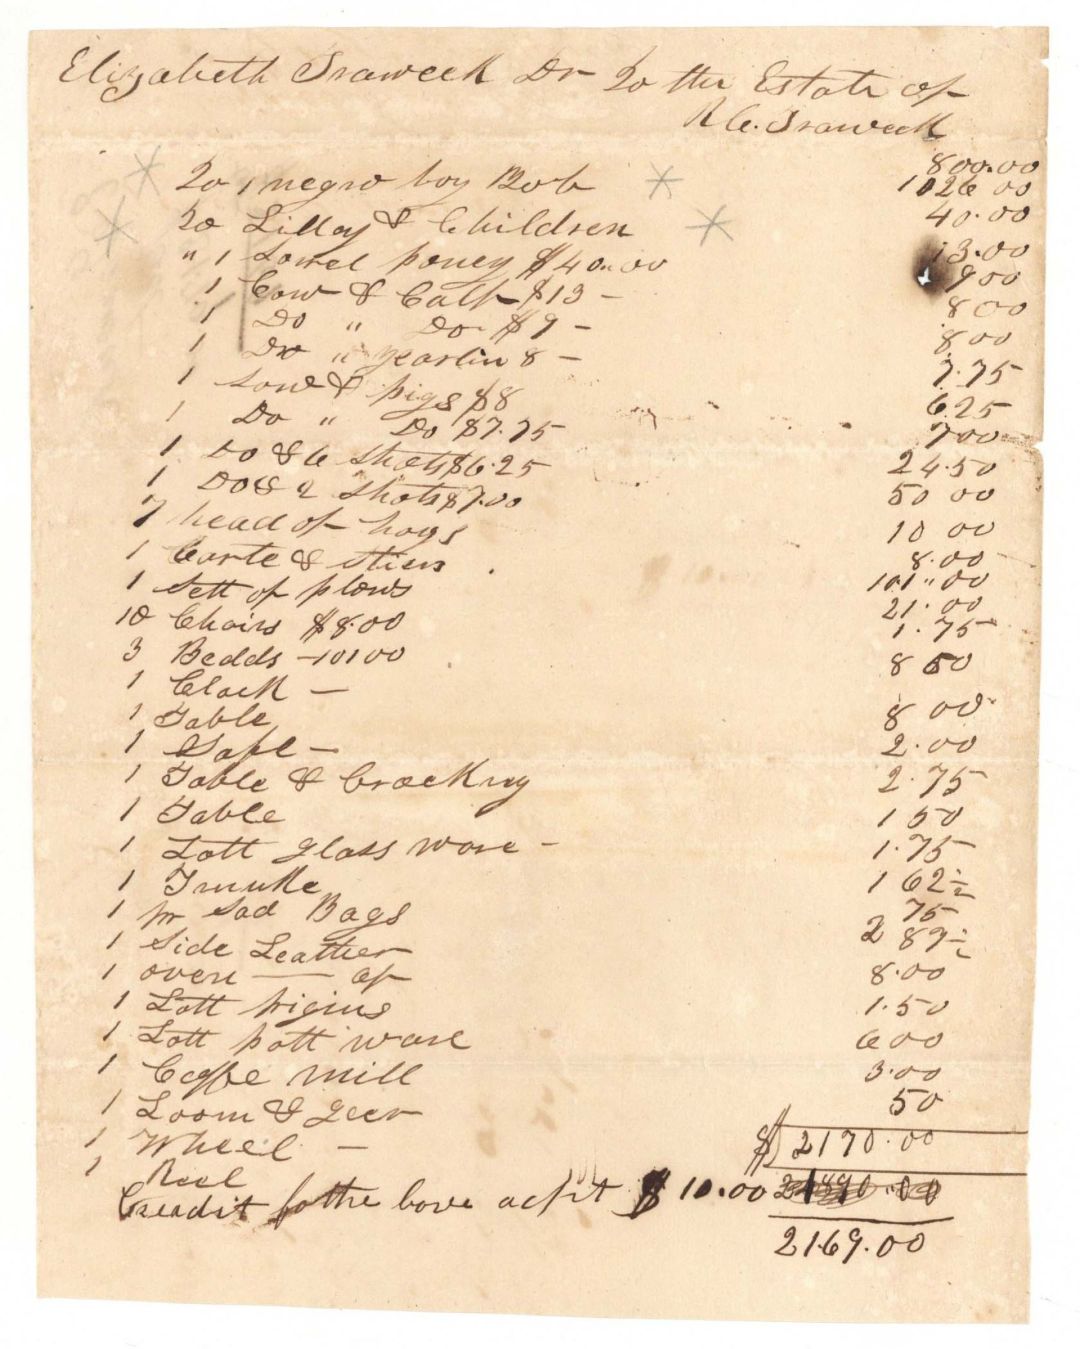 Elizabeth Traweek Dr To the Estate of
R C. Traweek
To 1 negro boy Bob 800.00
To Lilley & Children 1026 00
" 1 Sorrel poney $40..00 40.00
1 Cow & Calf $13 - 13.00
1 Do " Do $9 - 900
1 Do " yearlin 8 - 800
1 Sow & pigs $8 800
1 Do " Do $7.75 7.75
1 Do & 6 Shots $6.25 625
1 Do & 2 Shots $7.00 700
7 head of hogs 24.50
1 Carte & Stiers 50 00
1 Sett of plows 10 00
10 Chairs $8.00 8.00
3 Bedds - 101 00 101"00
1 Clock - 21.00
1 Table 1.75
1 Safe - 8 50
1 Table & Crockry 8 00
1 Table 2.00
1 Lott glass ware - 2.75
1 Trunke 1 50
1 pr Sad Bags 1.75
1 Side Leather 1 62½
1 oven — of 75
1 Lott pigins 2 87½
1 Lott pott ware 8.00
1 Coffee mill 1.50
1 Loom & geer 6 00
1 Wheel - 3.00
1 Reel 50
$ 2170.00
Creadit to the bove acpt $10.00
2169.00